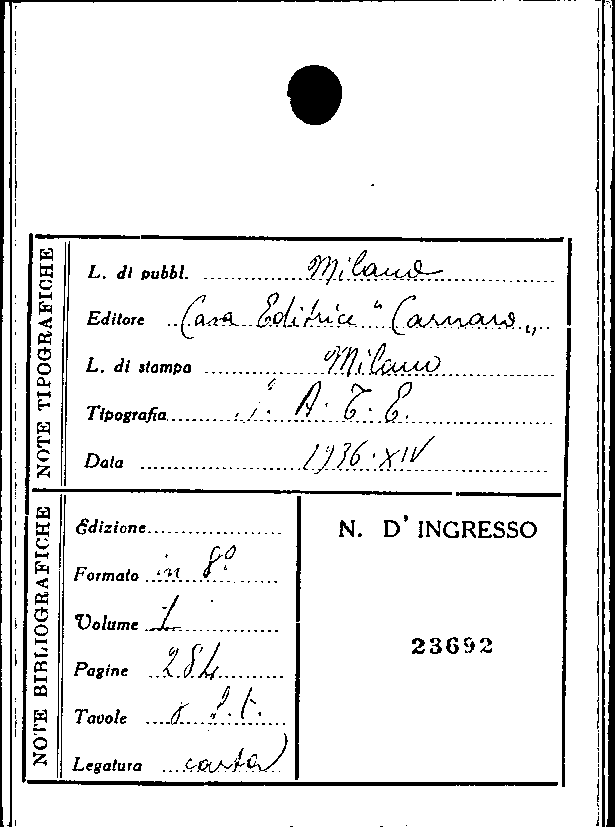 NOTE TIPOGRAFICHE
L. di pubbl. Milano
Editore Casa Editrice "Carnaro„
L. di stampa Milano
Tipografia A. T. E.
Data 1936 · XIV
NOTE BIBLIOGRAFICHE
Edizione
Formato in 8º
Volume 1
Pagine 284
Tavole 8 f. t.
Legatura carta
N. D' INGRESSO
23692